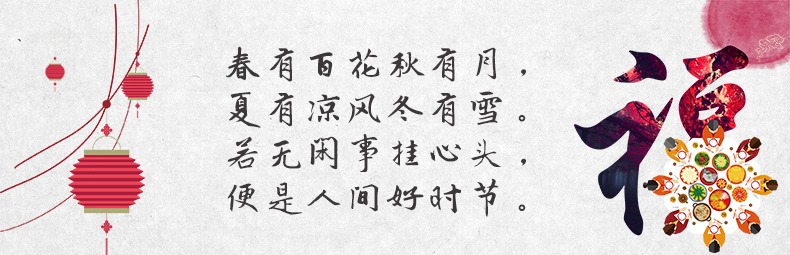 春有百花秋有月，
夏有凉风冬有雪。
若无闲事挂心头，
便是人间好时节。
福